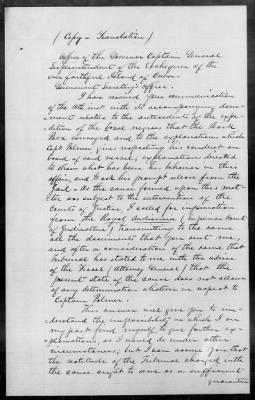 (Copy - Translation)
Office of the Governor Captain General
Superintendent of the Exchequer of the
ever faithful Island of Cuba.
Government Secretary's Office.
I have received your communication
of the 10th inst. with its accompanying docu-
ment relative to the antecedents of the expe-
dition of the bozal negroes that the Bark
conveyed and to the explanations which
Capt. Palmer gives respecting his conduct on
board of said vessel; explanations directed
to shew what has been his behavior in this
affair, and to ask his prompt release from the
Jail. As the cause formed upon this mat-
ter was subject to the intervention of the
Courts of Justice, I called for information
from the Royal Audiencia (Superior Court
of Judicature) transmitting to the same
all the documents that you sent me,
and after a consideration of the same that
Tribunal has stated to me with the advice
of the Fiscal (Attorney General) that the
present state of the cause does not allow
of any determination whatever in respect to
Captain Palmer.
This answer will give you to un-
derstand the impossibility in which I on
my part find myself to give further ex-
planations, as I would do under other
circumstances; but I can assure you that
the rectitude of the Tribunal charged with
the cause ought to serve as a sufficient
guarantee